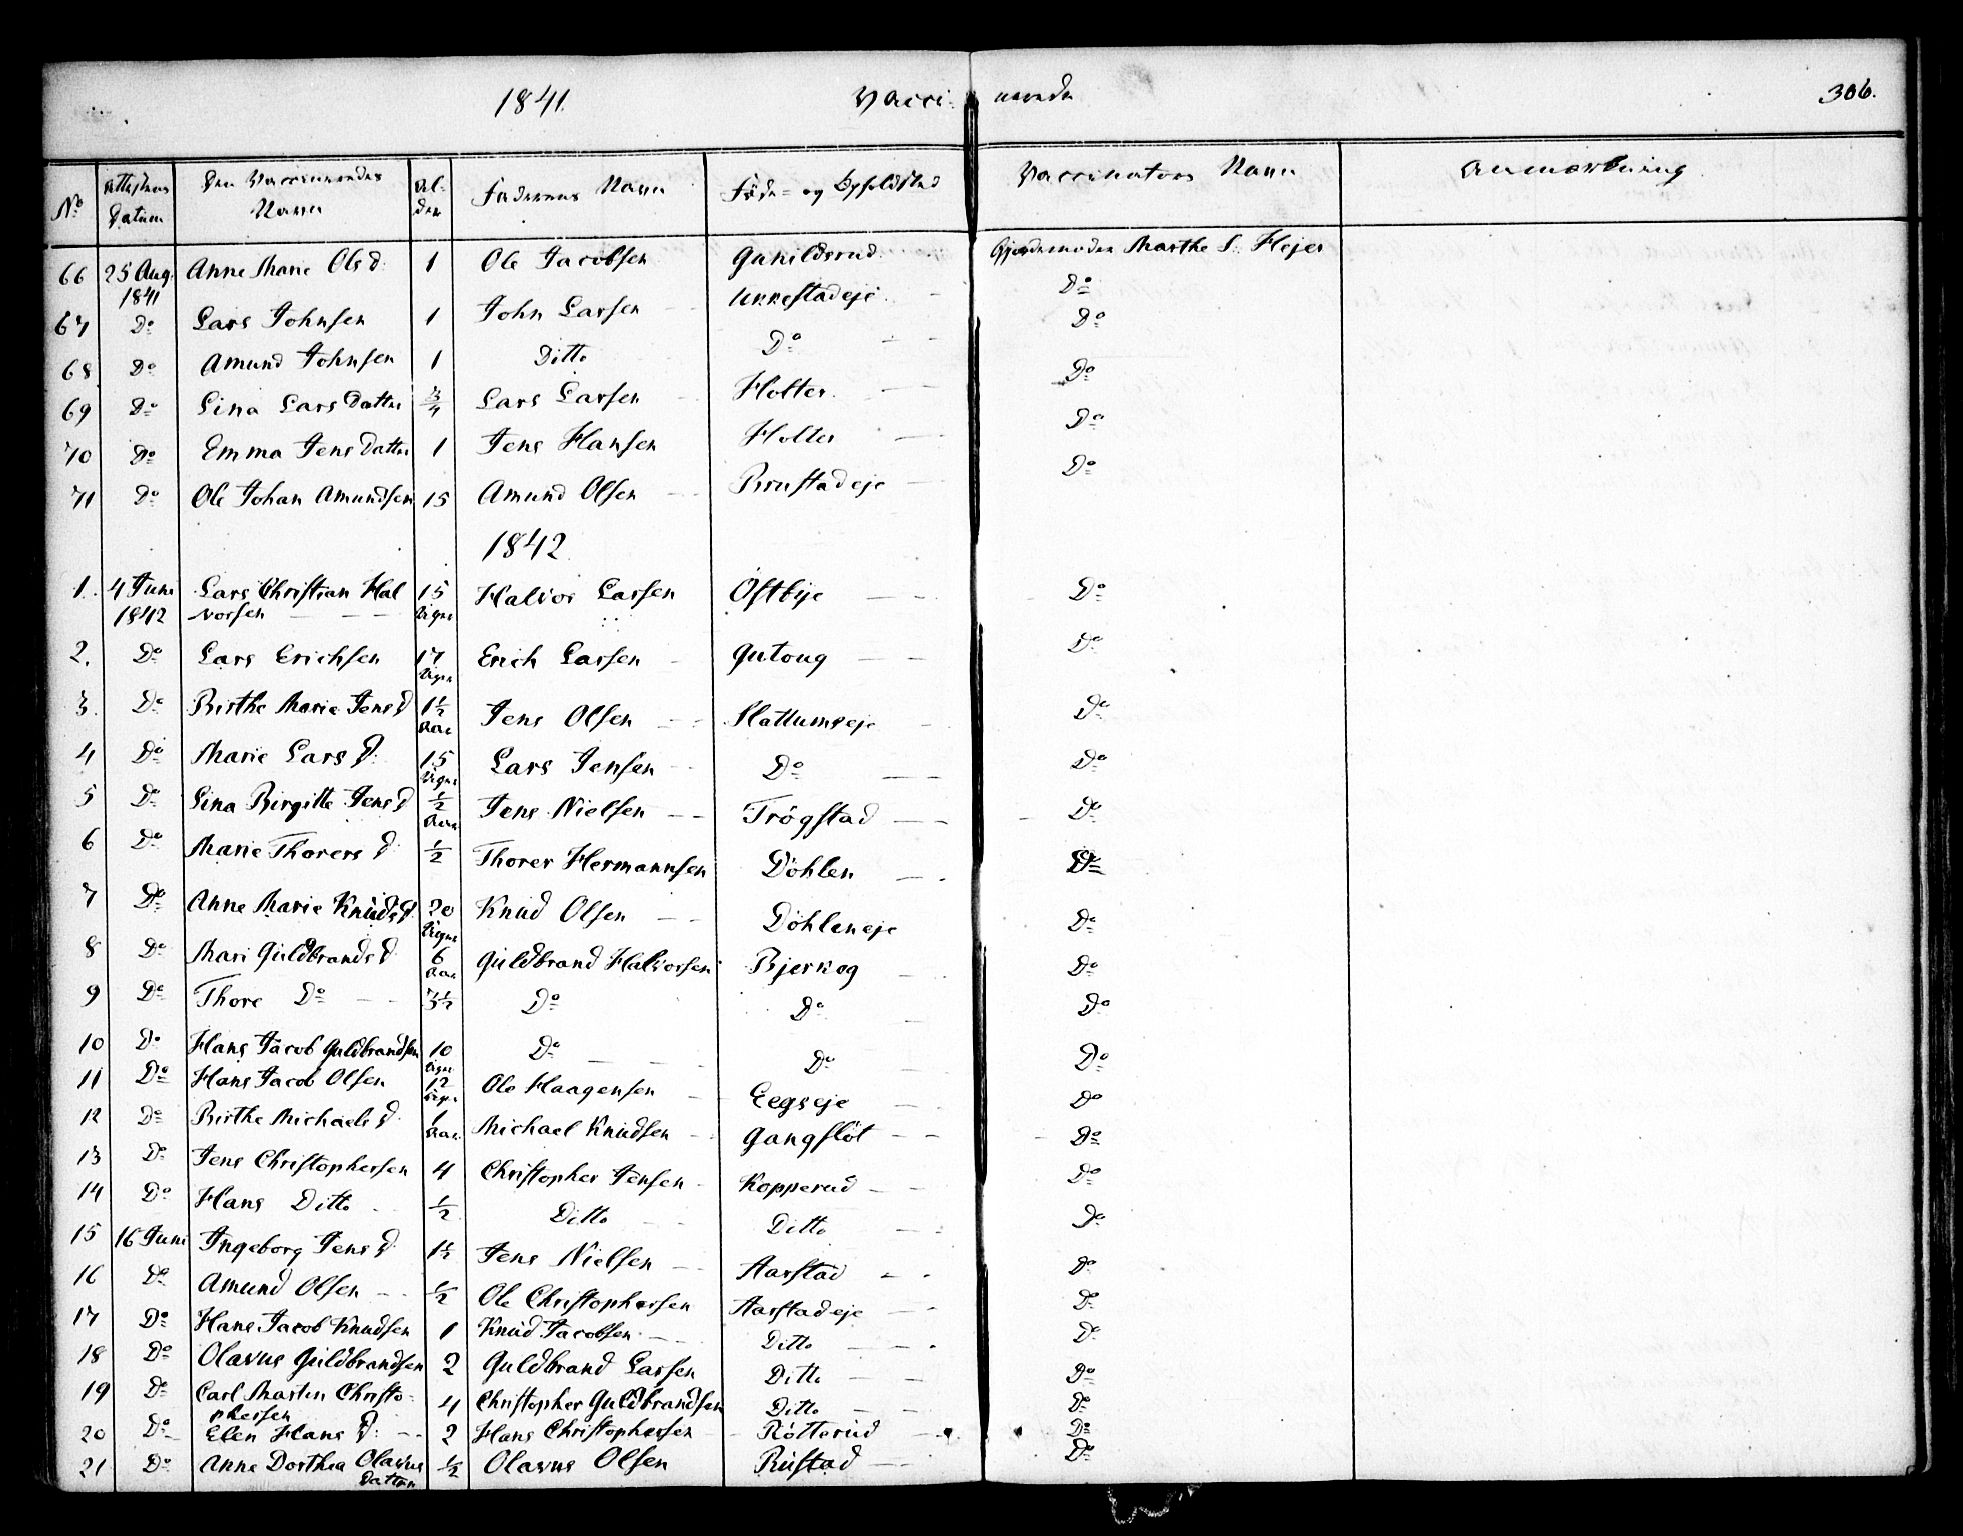 1841. Vacci- nerede 306.
No Attestens Datum Den Vaccineredes Navn Al- der Faderens Navn Føde- og Opholdsted Vaccinators Navn Anmærkning
66 25 Aug. 1841 Anne Marie Ols d. 1 Ole Jacobsen Gunildsrud Gjordemoder Marthe S. Hejer
67 Do Lars Johnsen 1 John Larsen Unnestadeje Do
68 Do Amund Johnsen 1 Ditto Do Do
69 Do Lina Lars Datter 3/4 Lars Larsen Holter Do
70 Do Emma Jens Datter 1 Jens Hansen Holter Do
71 Do Ole Johan Amundsen 15 Amund Olsen Brustadeje Do
1842
1. 4 Juni 1842 Lars Christian Halvorsen 15 Uger Halvor Larsen Østbye Do
2. Do Lars Erichsen 17 Uger Erich Larsen Gutoug Do
3. Do Birthe Marie Jens d 1½ Aar Jens Olsen Slattumseje Do
4 Do Marie Lars d. 15 Uger Lars Jensen Do Do
5 Do Lina Birgitte Jens d ½ Aar Jens Nielsen Trøgstad Do
6 Do Marie Thorers d. ½ Thorer Hermannsen Døhlen Do
7 Do Anne Marie Knuds d. 20 Uger Knud Olsen Døhleneje Do
8 Do Mari Guldbrands d. 6 Aar Guldbrand Halvorsen Bjerkog Do
9 Do Thore Do 3½ Do Do Do
10 Do Hans Jacob Guldbrandsen 10 Uger Do Do Do
11 Do Hans Jacob Olsen 12 Uger Ole Haagensen Eegseje Do
12 Do Birthe Michaels d. 1 Aar Michael Knudsen Gangfløt Do
13 Do Jens Christophersen 4 Christopher Jensen Kopperud Do
14 Do Hans Ditto ½ Ditto Ditto Do
15 16 Juni Ingeborg Jens d. 1½ Jens Nielsen Aarstad Do
16 Do Amund Olsen ½ Ole Christophersen Aarstadeje Do
17 Do Hans Jacob Knudsen 1 Knud Jacobsen Ditto Do
18 Do Olavus Guldbrandsen 2 Guldbrand Larsen Ditto Do
19 Do Carl Martin Christophersen 4 Christopher Guldbrandsen Ditto Do
20 Do Elen Hans d. 2 Hans Christophersen Røtterud Do
21 Do Anne Dorthea Olavus Datter ½ Olavus Olsen Rustad Do